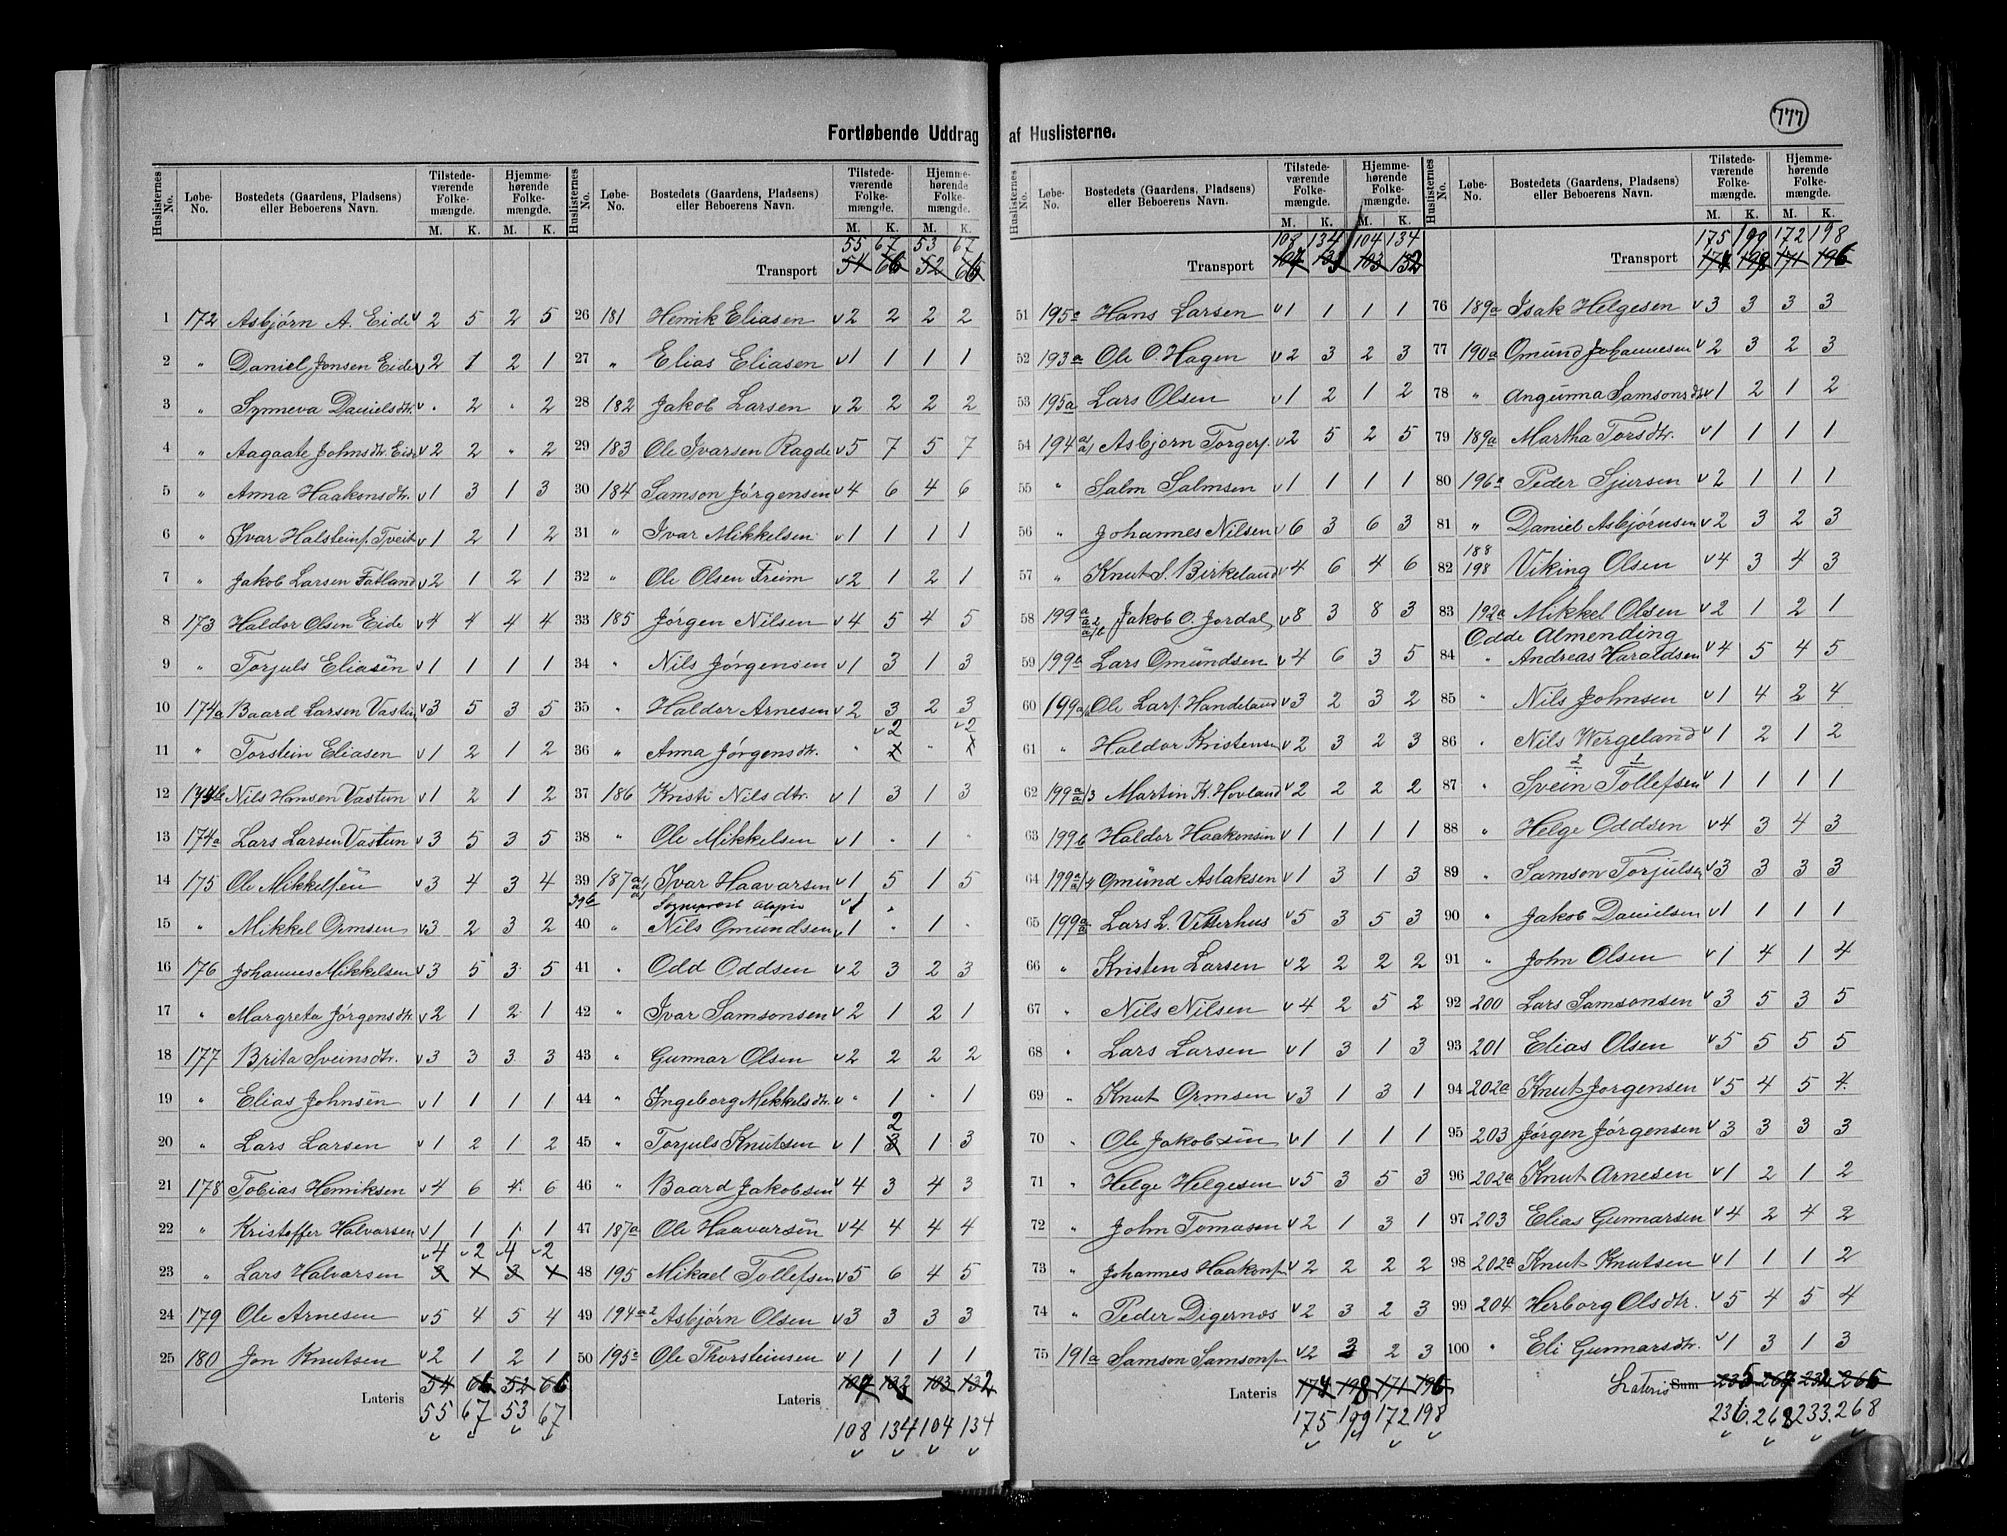 777
Fortløbende Uddrag af Huslisterne.
Huslisternes No. Løbe-No. Bostedets (Gaardens, Pladsens) eller Beboerens Navn. Tilstedeværende Folkemængde. M. K. Hjemmehørende Folkemængde. M. K.
1 172 Asbjørn A. Eide v 2 5 2 5
2 " Daniel Jonsen Eide v 2 1 2 1
3 " Synneva Danielsdtr. v . 2 . 2
4 " Aagaate Johnsdtr. Eide v 2 2 " 2
5 " Anna Haakonsdtr. v 1 3 1 3
6 " Ivar Halsteins. Tveit v 1 2 1 2
7 " Jakob Larsen Fatland v 2 1 2 1
8 173 Haldor Olsen Eide v 4 4 4 4
9 " Torjuls Eliasen v 1 1 1 1
10 174a Baard Larsen Vastun v 3 5 3 5
11 " Torstein Eliasen v 1 2 1 2
12 174b Nils Hansen Vastun v 1 2 1 2
13 174a Lars Larsen Vastun v 3 5 3 5
14 175 Ole Mikkelsen v 3 4 3 4
15 " Mikkel Ormsen v 3 2 3 2
16 176 Johannes Mikkelsen v 3 5 3 5
17 " Margreta Jørgensdtr. v 2 1 2 1
18 177 Brita Sveinsdtr. v 3 3 3 3
19 " Elias Johnsen v 1 1 1 1
20 " Lars Larsen v 1 2 1 2
21 178 Tobias Henriksen v 4 6 4 6
22 " Kristoffer Halvarsen v 1 1 1 1
v 4 v 2 v 4 v 2
23 " Lars Halvarsen 3 x 3 x
24 179 Ole Arnesen v 5 4 5 4
25 180 Jon Knutsen v 2 1 2 1
Lateris 54 66 52 66
55 67 53 67
Huslisternes No. Løbe-No. Bostedets (Gaardens, Pladsens) eller Beboerens Navn. Tilstedeværende Folkemængde. M. K. Hjemmehørende Folkemængde. M. K.
55 67 53 67
Transport 54 66 52 66
26 181 Henrik Eliasen v 2 2 2 2
27 " Elias Eliasen v 1 1 1 1
28 182 Jakob Larsen v 2 2 2 2
29 183 Ole Ivarsen Ragde v 5 7 5 7
30 184 Samson Jørgensen v 4 6 4 6
31 " Ivar Mikkelsen v 1 1 1 1
32 " Ole Olsen Freim v 2 1 2 1
33 185 Jørgen Nilsen v 4 5 4 5
34 " Nils Jørgensen v 1 3 1 3
35 " Haldor Arnesen v 2 3 2 3
v 2 v 2
36 " Anna Jørgensdtr. " x " x
37 186 Kristi Nilsdtr. v 1 3 1 3
38 " Ole Mikkelsen v 1 . 1 .
39 187a Ivar Haavarsen v 1 5 1 5
39b v 1 .
40 " Nils Omundsen v 1 . 1 .
41 " Odd Oddsen v 2 3 2 3
42 " Ivar Samsonsen v 2 1 2 1
43 " Gunnar Olsen v 2 2 2 2
44 " Ingeborg Mikkelsdtr. v " 1 . 1
2
45 " Torjuls Knutsen v 1 3 1 3
46 " Baard Jakobsen v 4 3 4 3
47 187a Ole Haavarsen v 4 4 4 4
48 195 Mikael Tollefsen v 5 6 4 5
49 194a2 Asbjørn Olsen v 3 3 3 3
50 195a Ole Thorsteinsen v 1 1 1 1
Lateris 107 132 103 132
108 134 104 134
Huslisternes No. Løbe-No. Bostedets (Gaardens, Pladsens) eller Beboerens Navn. Tilstedeværende Folkemængde. M. K. Hjemmehørende Folkemængde. M. K.
108 134 104 134
Transport 107 133 103 132
51 195c Hans Larsen v 1 1 1 1
52 193a Ole O. Hagen v 2 3 2 3
53 195a Lars Olsen v 1 2 1 2
54 194 a/a1 Asbjørn Torgers. v 2 5 2 5
55 " Salm Salmsen v 1 1 1 1
56 " Johannes Nilsen v 6 3 6 3
57 " Knut S. Birkeland v 4 6 4 6
58 199 Jakob O. Jordal v 8 3 8 3
59 199a Lars Omundsen v 4 6 3 5
60 199a Ole Lars. Handeland v 3 2 3 2
61 " Haldor Kristensen v 2 3 2 3
62 199 a/a13 Martin K. Hovland v 2 2 2 2
63 199b Haldor Haakonsen v 1 1 1 1
64 199 a/a14 Omund Aslaksen v 1 3 1 3
65 199 a/a Lars L. Vetterhus v 5 3 5 3
66 " Kristen Larsen v 2 2 2 2
67 " Nils Nilsen v 4 2 5 2
68 " Lars Larsen v 1 3 1 3
69 " Knut Ormsen v 3 1 3 1
70 " Ole Jakobsen v 1 1 1 1
71 " Helge Helgesen v 5 3 5 3
72 " John Tomasen v 2 1 3 1
73 " Johannes Haakons. v 2 2 2 2
74 " Peder Digernæs v 2 3 2 3
75 191a Samson Samsons. v 2 3 2 3
Lateris 174 198 171 196
175 199 172 198
Huslisternes No. Løbe-No. Bostedets (Gaardens, Pladsens) eller Beboerens Navn. Tilstedeværende Folkemængde. M. K. Hjemmehørende Folkemængde. M. K.
175 199 172 198
Transport 174 198 171 196
76 189a Isak Helgesen v 3 3 3 3
77 190a Omund Johannesen v 2 3 2 3
78 " Angunna Samsonsdtr v 1 2 1 2
79 189a Martha Torsdtr. v 1 1 1 1
80 196a Peder Sjursen v 2 1 1 1
81 " Daniel Asbjørnsen v 2 3 2 3
188
82 198 Viking Olsen v 4 3 4 3
83 192a Mikkel Olsen v 2 1 2 1
Odde Almending
84 " Andreas Haraldsen v 4 5 4 5
85 " Nils Johnsen v 1 4 2 4
86 " Nils Wergeland v 1 2 1 2
2 1
87 " Svein Tollefsen v 1 1 1 1
88 " Helge Oddsen v 4 3 4 3
89 " Samson Torjulsen v 3 3 3 3
90 " Jakob Danielsen v 1 1 1 1
91 " John Olsen v 1 4 1 4
92 200 Lars Samsonsen v 3 5 3 5
93 201 Elias Olsen v 5 5 5 5
94 202a Knut Jørgensen v 5 4 5 4
95 203 Jørgen Jørgensen v 3 3 3 3
96 202a Knut Arnesen v 1 2 1 2
97 203 Elias Gunnarsen v 4 2 4 2
98 202a Knut Knutsen v 1 1 1 2
99 204 Herborg Olsdtr. v 5 4 5 4
100 " Eli Gunnarsdtr. v 1 3 1 3
Lateris Sum 235 267 232 266
236 268 233 268